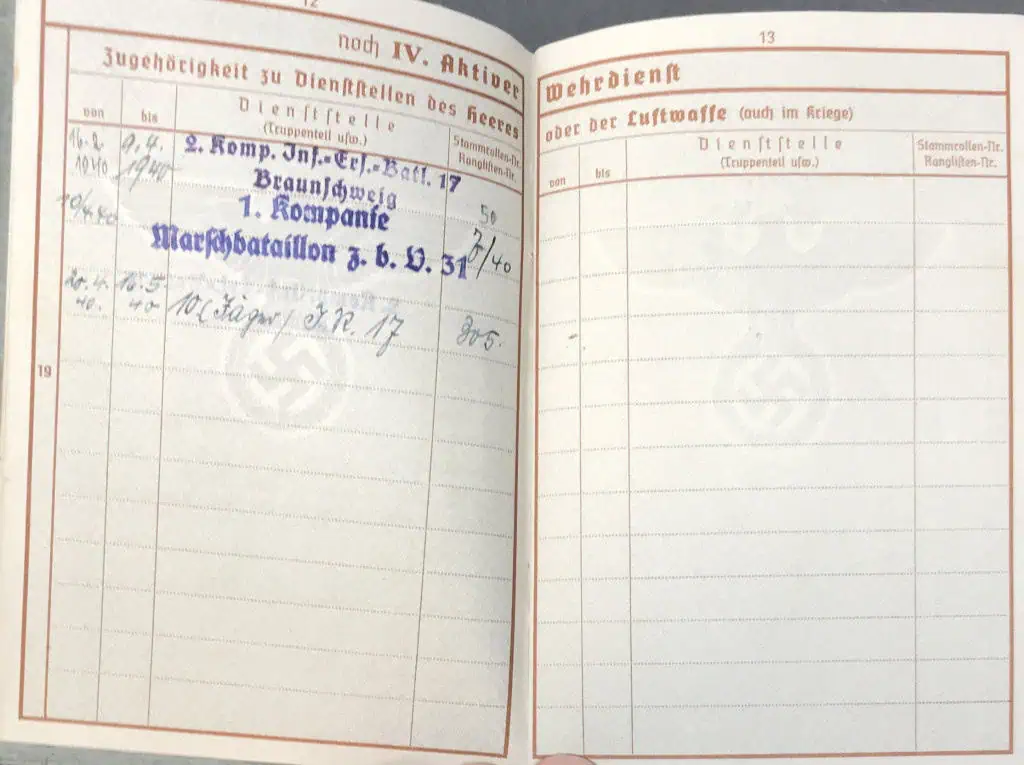 12
noch IV. Aktiver
Zugehörigkeit zu Dienststellen des Heeres
von
bis
Dienststelle
(Truppenteil usw.)
Stammrollen-Nr.
Ranglisten-Nr.
16.2. 1940
9.4. 1940
2. Komp. Inf.=Ers.=Batl. 17
Braunschweig
50
10/4.40
1. Kompanie
Marschbataillon z. b. V. 31
/40
20.4. 40.
16.5 40
10 (Jäger) I.R. 17
305.
19
13
Wehrdienst
oder der Luftwaffe (auch im Kriege)
von
bis
Dienststelle
(Truppenteil usw.)
Stammrollen-Nr.
Ranglisten-Nr.